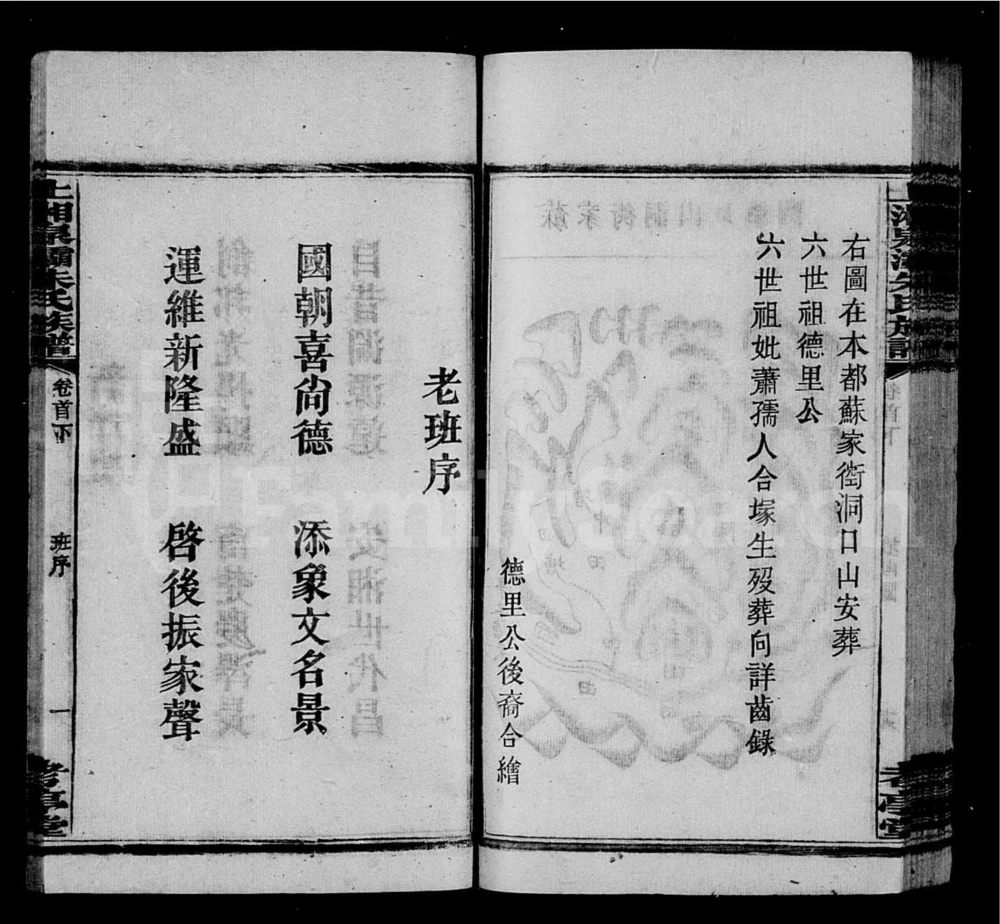 右圖在本都蘇家衖洞口山安葬
六世祖德里公
六世祖妣蕭孺人合塚生歿葬向詳齒錄
德里公後裔合繪
老班序
國朝喜尙德 添象文名景
運維新隆盛 啓後振家聲
上湘泉灞朱氏族譜 卷首下 班序 一 考亭堂